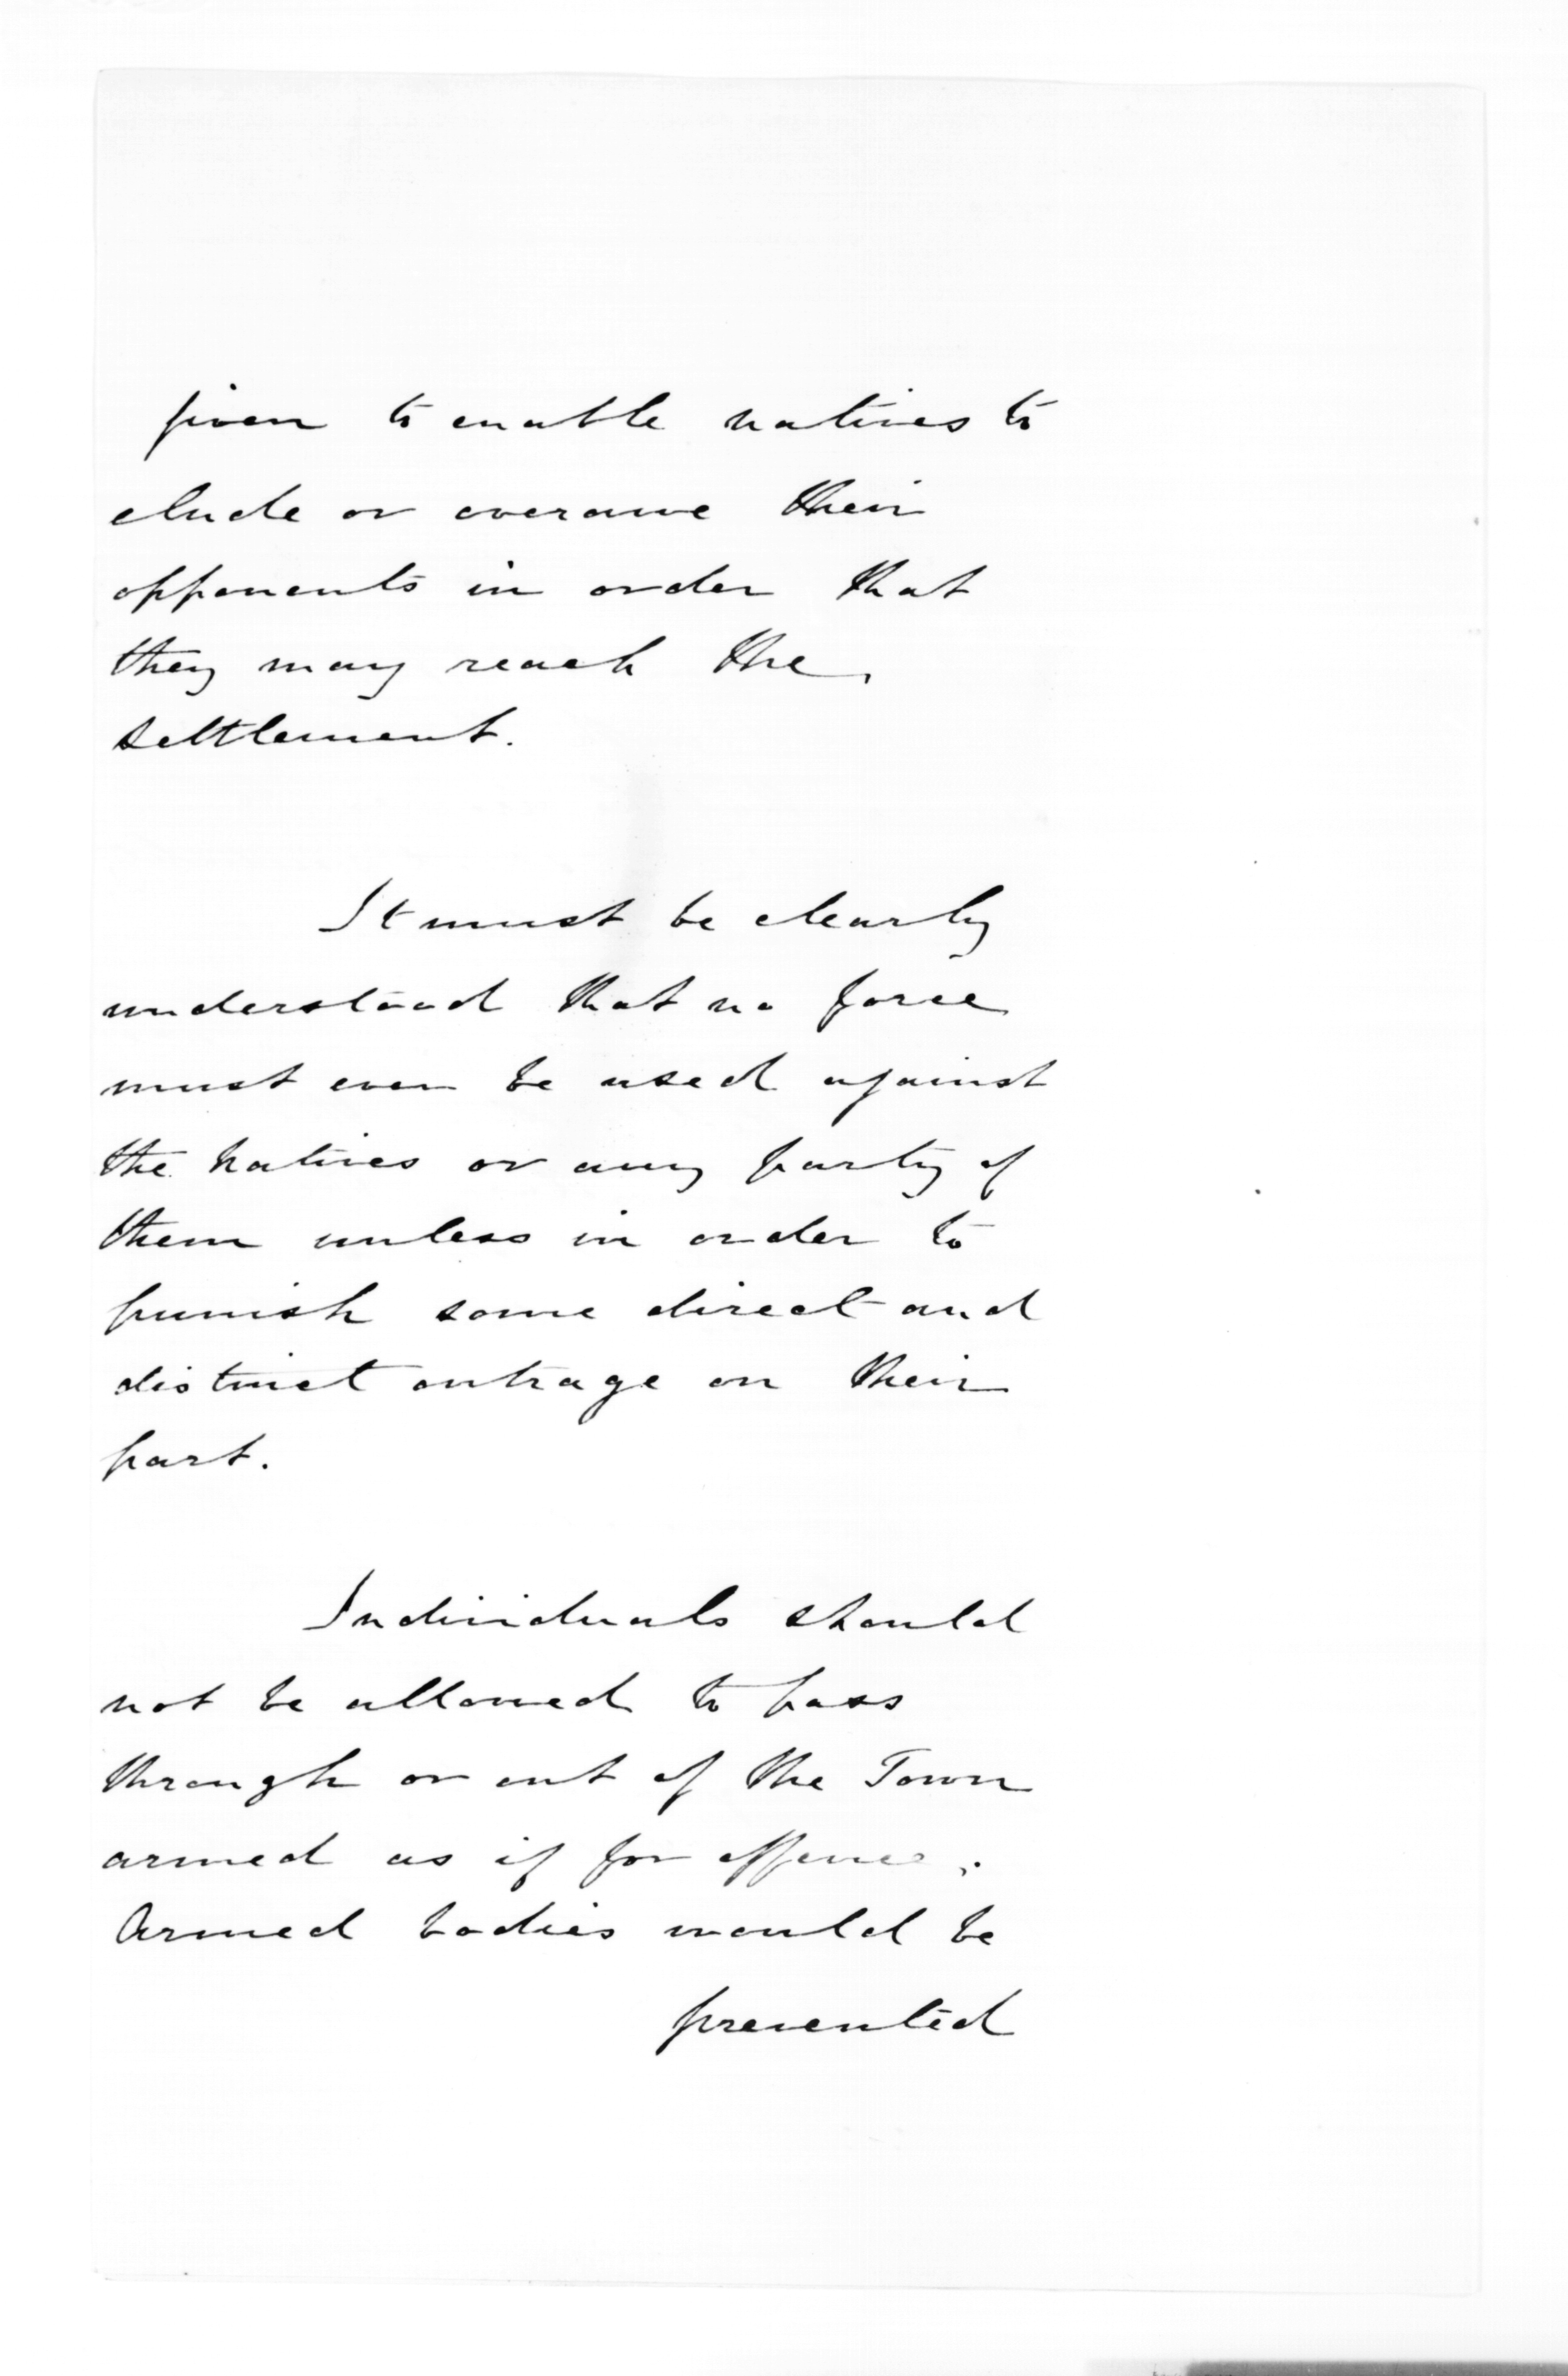 given to enable natives to
elude or overawe their
opponents in order that
they may reach the
settlement.
It must be clearly
understood that no force
must ever be used against
the Natives or any party of
them unless in order to
punish some direct and
distinct outrage on their
part.
Individuals should
not be allowed to pass
through or out of the Town
armed as if for offence.
Armed bodies would be
prevented